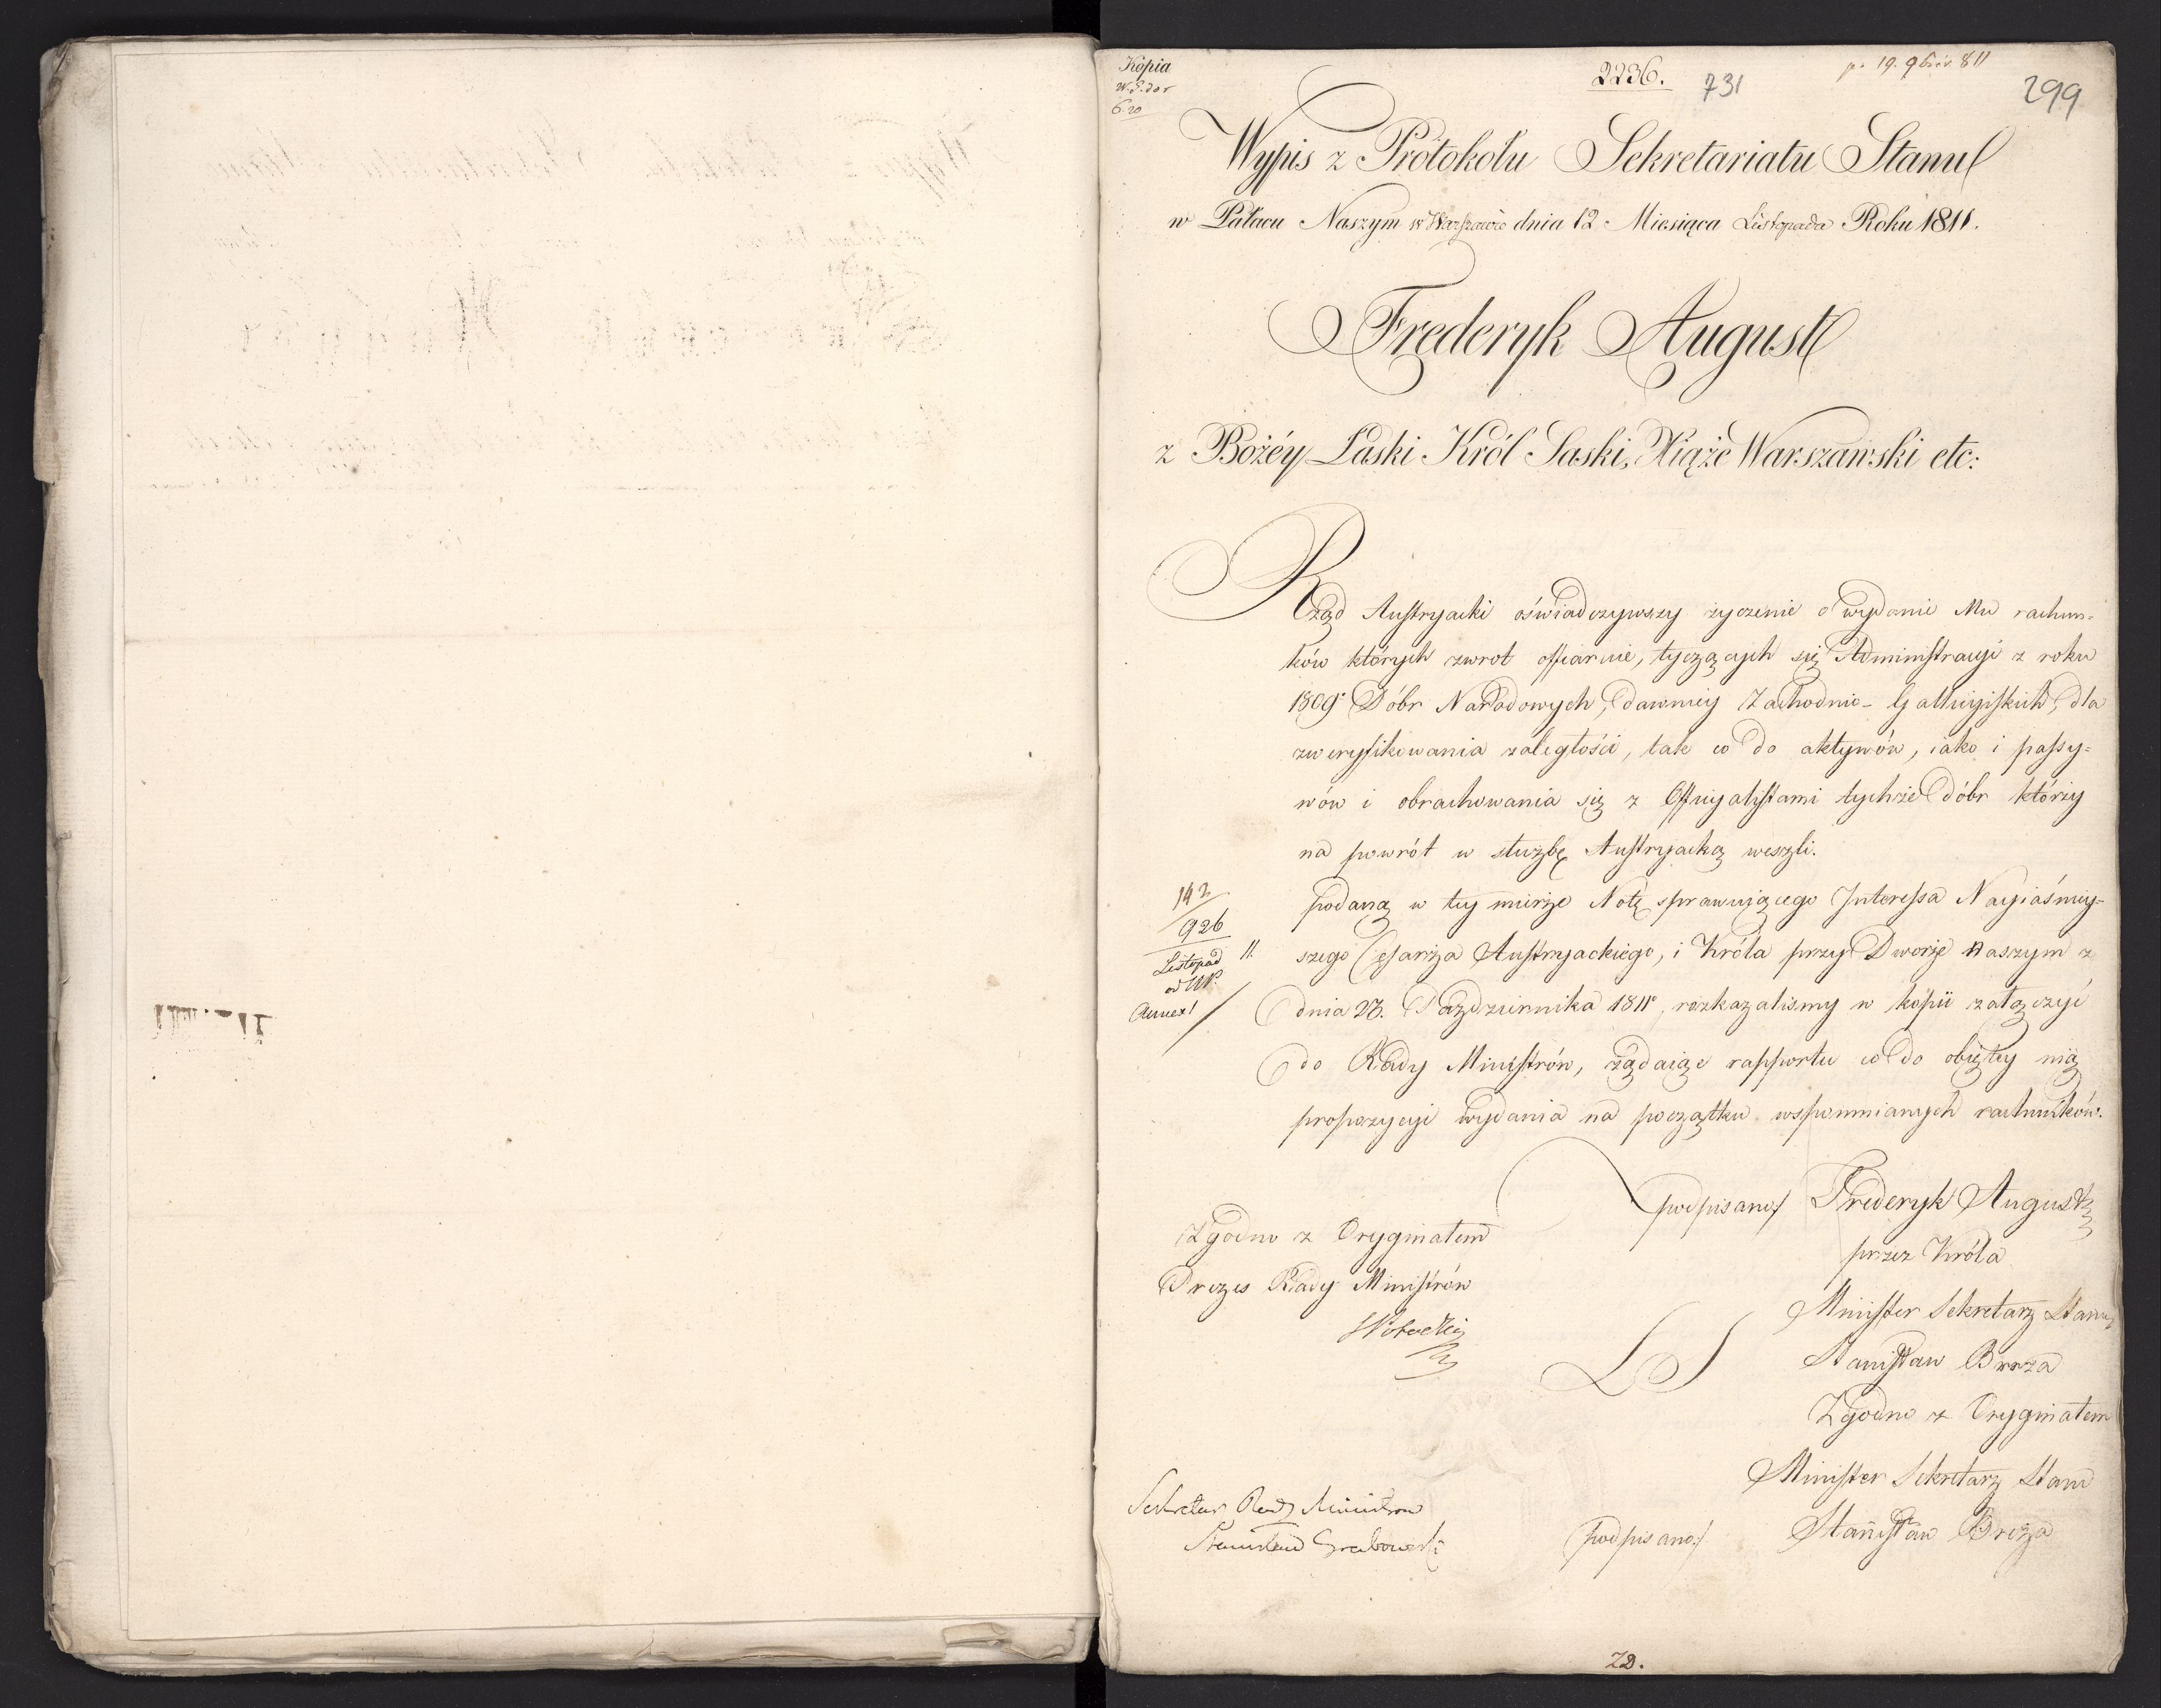 Kopia
W.S. dor
6.20
2236.
731
p. 19. 9briś 811
299
Wypis z Protokołu Sekretariatu Stanu
w Pałacu Naszym w Warszawie dnia 12 Miesiąca Listopada Roku 1811.
Frederyk August
z Bożéy Łaski Król Saski, Xiąże Warszawski etc:
Rząd Austryacki oświadczywszy życzenie o wydanie Mu rachun-
ków których zwrot offiaruie, tyczących się Administracyi z roku
1809º Dóbr Narodowych, dawniey Zachodnio-Gallicyiskich, dla
zweryfikowania zaległości, tak co do aktywów, iako i passy-
wów i obrachowania się z Officyalistami tychże dóbr którzy
na powrót w służbę Austryacką weszli.
142
926
Listopad 11.
od UP.
Annex!
podaną w tey mierze Notę sprawuiącego Interessa Nayiaśniey-
szego Cesarza Austryackiego, i Króla przy Dworze Naszym z
dnia 28. Października 1811º, rozkazalismy w kopii załączyć
do Rady Ministrów, żądaiąc rapportu co do obiętey nią
propozycyi wydania na początku wspomnianych rachunków.
podpisano/ Frederyk August
przez Króla
Minister Sekretarz Stanu
Stanisław Breza
Zgodno z Oryginałem
Prezes Rady Ministrów
SPotocki
L S
Zgodno z Oryginałem
Minister Sekretarz Stanu
podpisano/ Stanisław Breza
Sekretarz Rady Ministrow
Stanisław Grabowski
ZD.